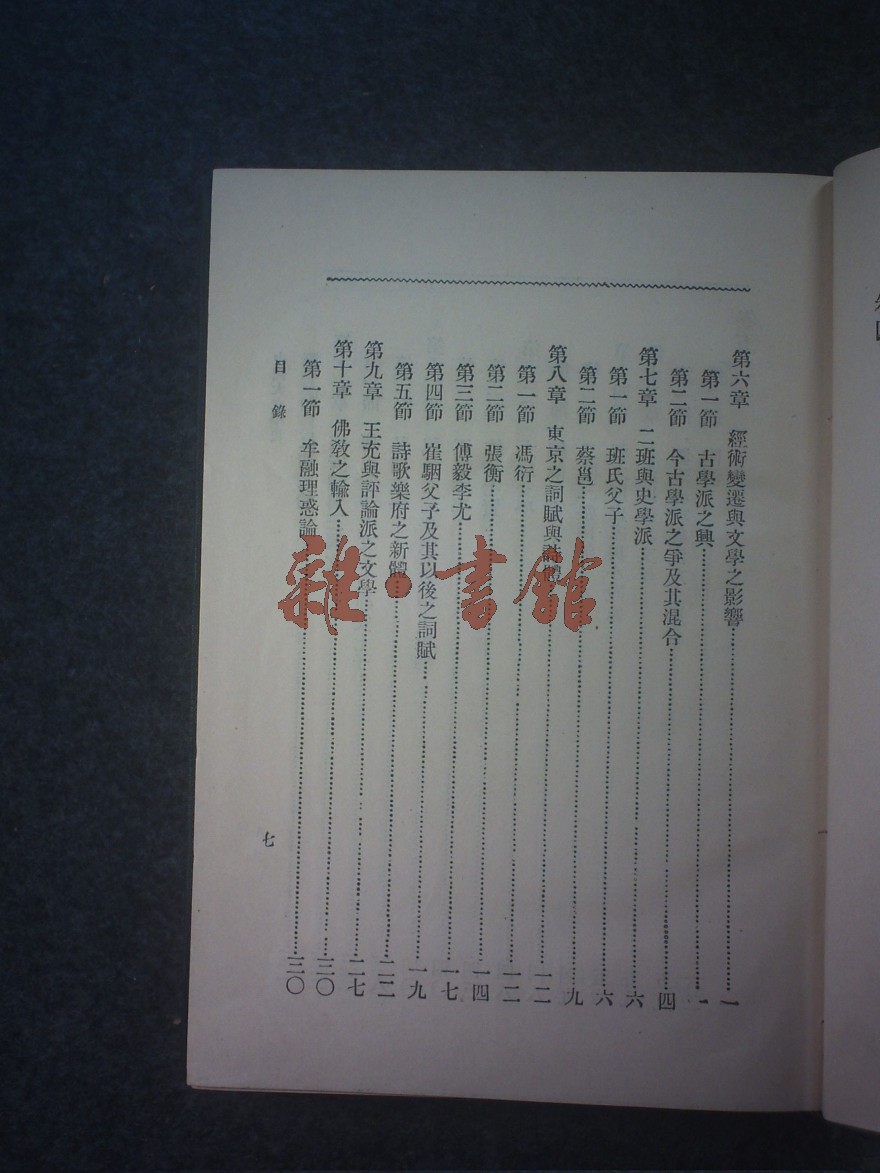 第六章　經術變遷與文學之影響……一
第一節　古學派之興……一
第二節　今古學派之爭及其混合……四
第七章　二班與史學派……六
第一節　班氏父子……六
第二節　蔡邕……九
第八章　東京之詞賦與詩體……一二
第一節　馮衍……一二
第二節　張衡……一四
第三節　傅毅李尤……一七
第四節　崔駰父子及其以後之詞賦……一九
第五節　詩歌樂府之新體……二二
第九章　王充與評論派之文學……二七
第十章　佛教之輸入……三〇
第一節　牟融理惑論……三〇
目錄
七
雜·書館